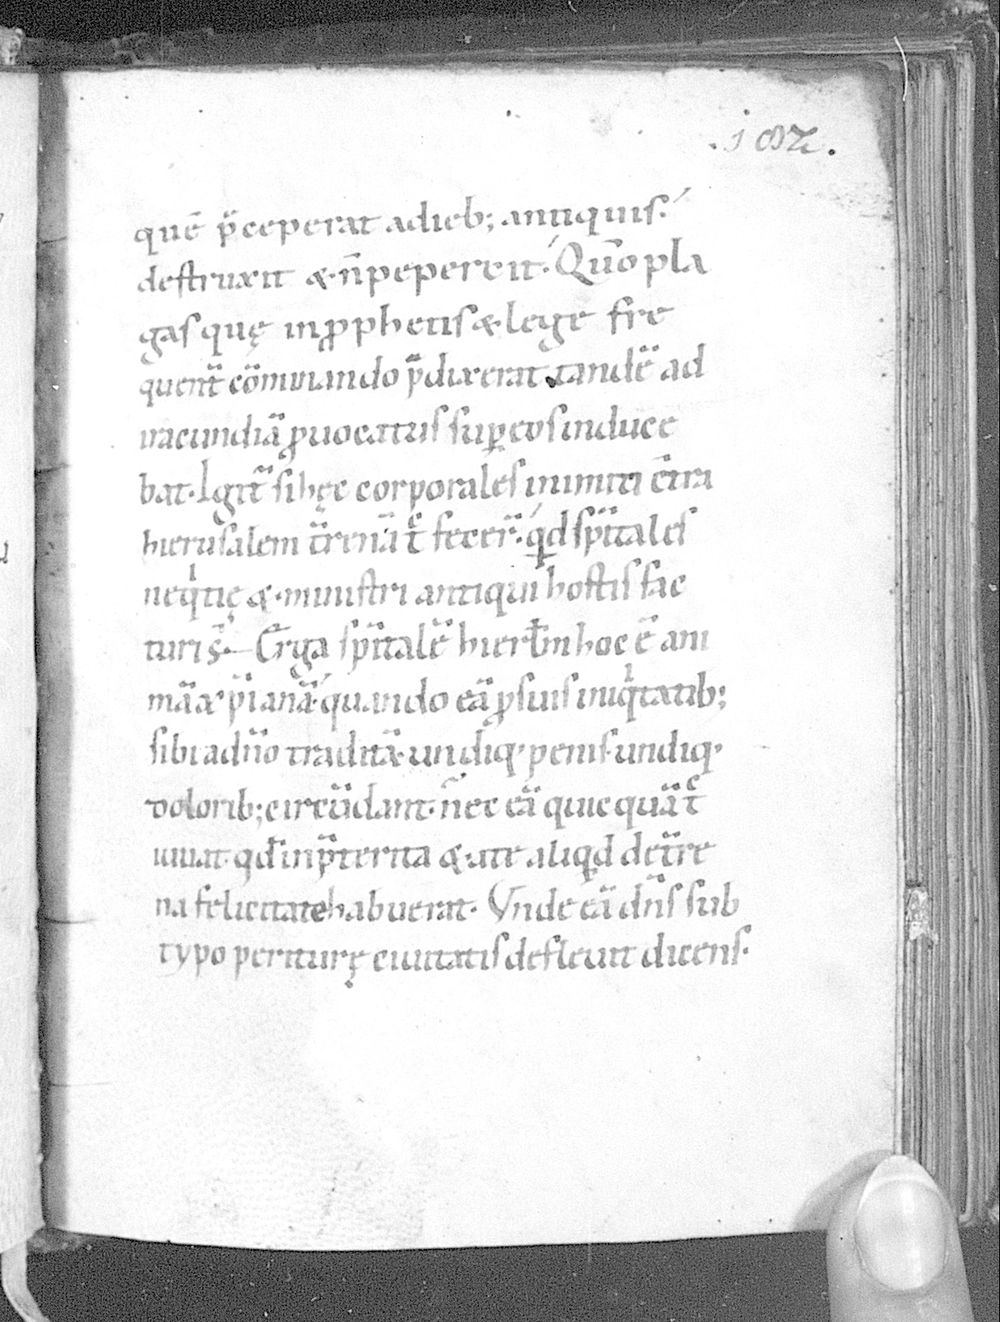 .182.
quē p̄ceperat a dieb; antiquis.
destruxit & n̄ pepercit. Quō pla
gas quę in ꝓphetis & lege fre
quent̄ cōminando p̄dixerat tandē ad
iracundiā ꝓuocatus sup eos induce
bat. Igit̄ si hęc corporales inimici c̄tra
hierusalem t̄renā t̄c fecer̄. qd sp̄itales
neqtię & ministri antiqui hostis fac
turi s̄. Erga sp̄italē hierl̄m hoc ē ani
mā xp̄ianā. quando eā ꝓ suis iniqtatib;
sibi ad iīo traditā undiq. penis undiq.
dolorib; circūdant. n̄ ec eā quicquā t̄c
iuuat qd in p̄terita &ate aliqd de t̄re
na felicitate habuerat. Vnde eā dn̄s sub
typo periturę ciuitatis defleuit dicens.